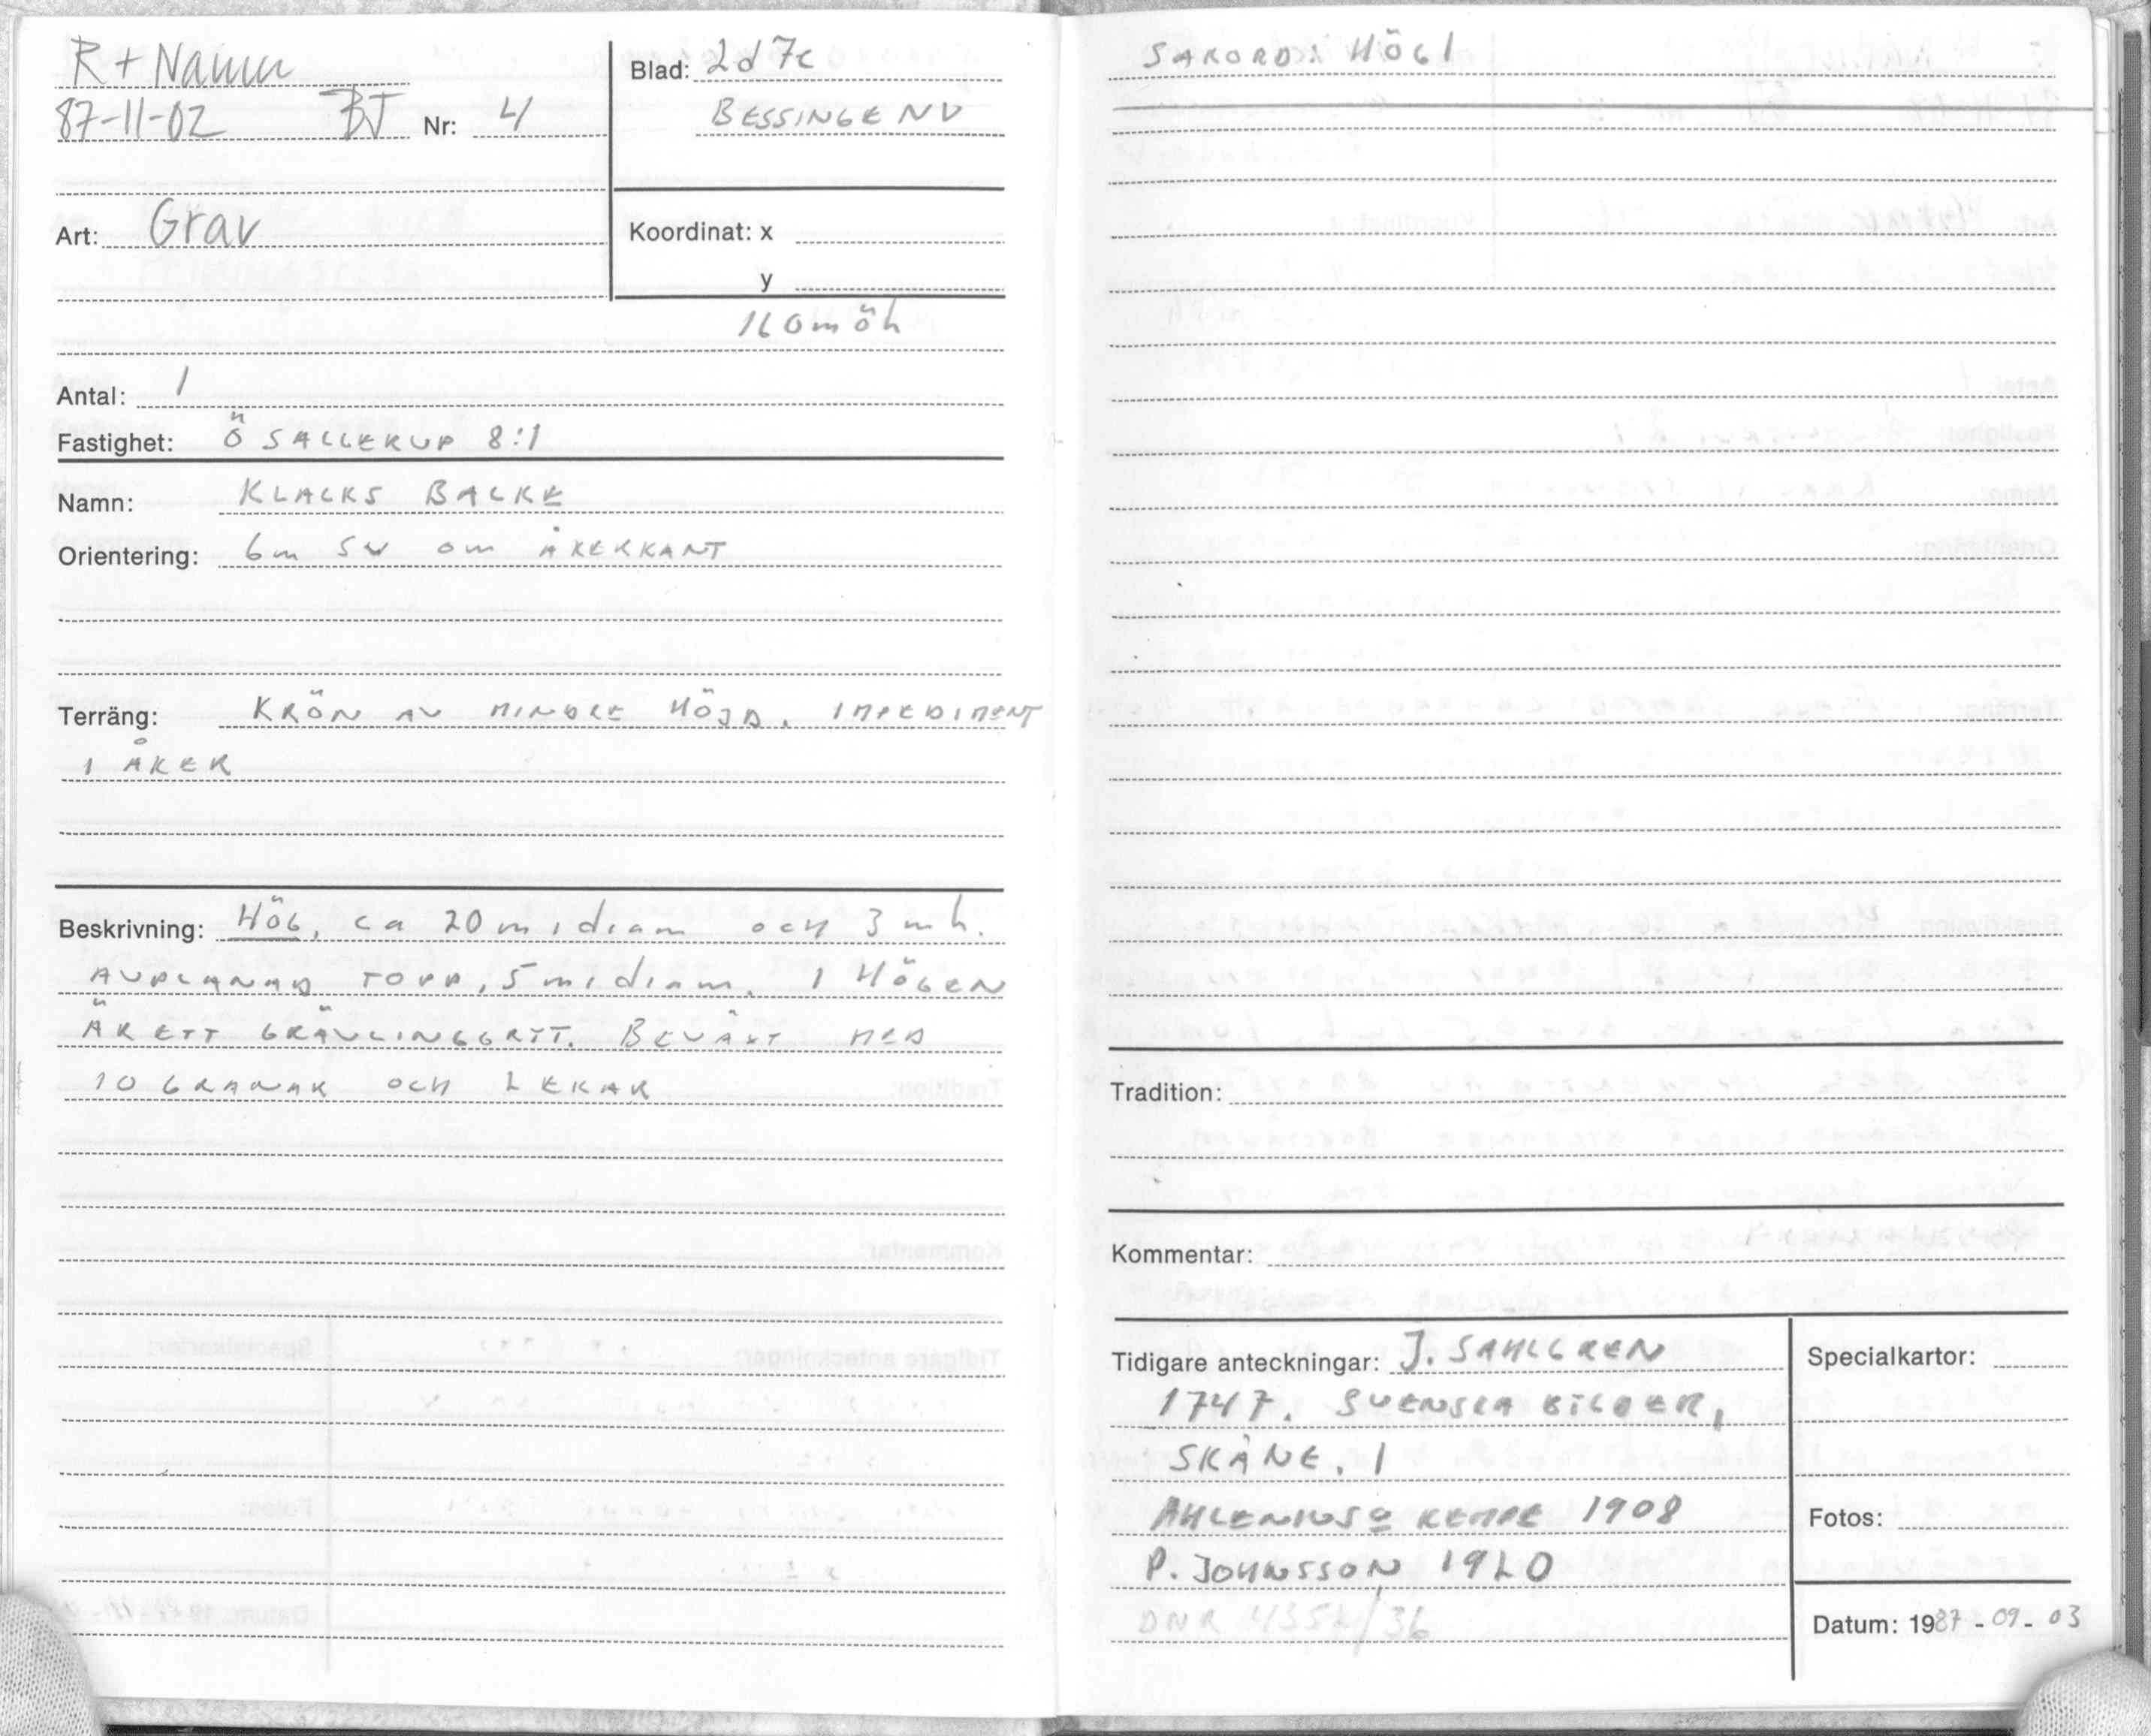 R+Namn
87-11-02 BJ Nr: 4
Blad: 2d 7c
BESSINGE NV
Art: Grav
Koordinat: x
y
160 m öh
Antal: 1
Fastighet: Ö SALLERUP 8:1
Namn: KLACKS BACKE
Orientering: 6m SV om ÅKERKANT
Terräng: KRÖN AV MINDRE HÖJD. IMPEDIMENT
I ÅKER
Beskrivning: HÖG, ca 20 m i diam och 3 m h.
AVPLANAD TOPP, 5 m i diam. I HÖGEN
ÄR ETT GRÄVLINGGRYT. BEVÄXT MED
10 GRANAR OCH 2 EKAR
SAKORD: HÖG 1
Tradition:
Kommentar:
Tidigare anteckningar: J. SAHLGREN
1747. SVENSKA BILDER,
SKÅNE. 1
AHLENIUS o KEMPE 1908
P. JOHNSSON 1920
DNR /36
Specialkartor:
Fotos:
Datum: 1987-09-03